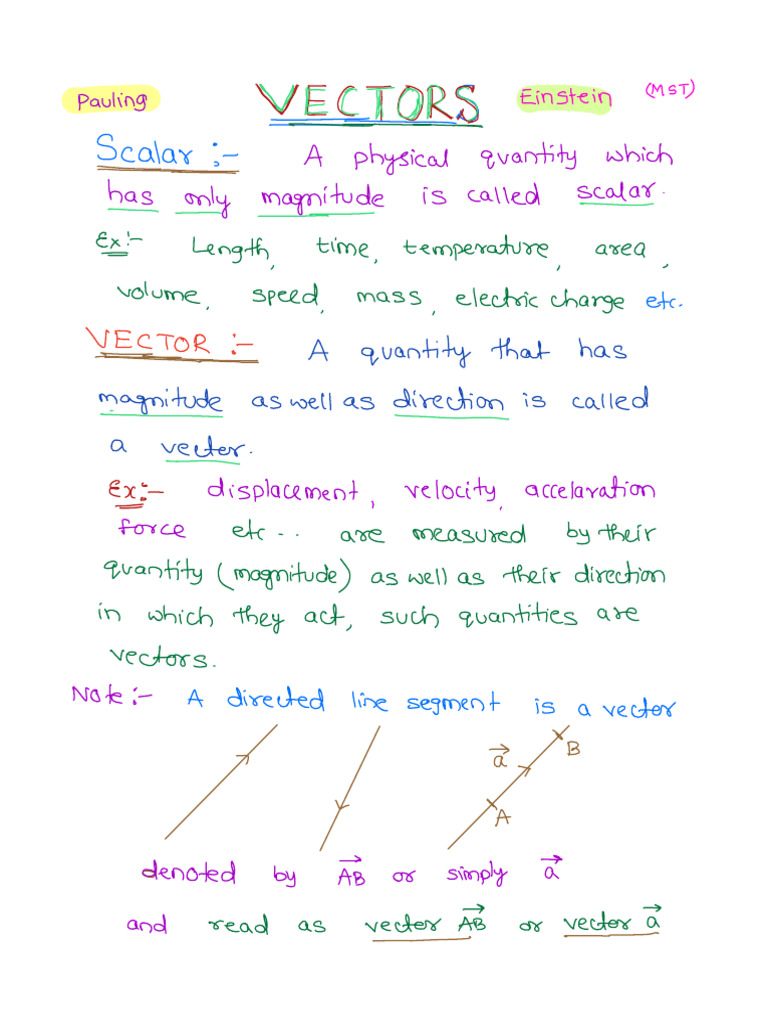 Pauling VECTORS Einstein (MST)
Scalar :- A physical quantity which
has only magnitude is called scalar.
Ex:- Length, time, temperature, area,
volume, speed, mass, electric charge etc.
VECTOR :- A quantity that has
magnitude as well as direction is called
a vector.
Ex:- displacement, velocity, accelaration
force etc... are measured by their
quantity (magnitude) as well as their direction
in which they act, such quantities are
vectors.
Note:- A directed line segment is a vector
a⃗ B
A
denoted by A⃗B⃗ or simply a⃗
and read as vector A⃗B⃗ or vector a⃗